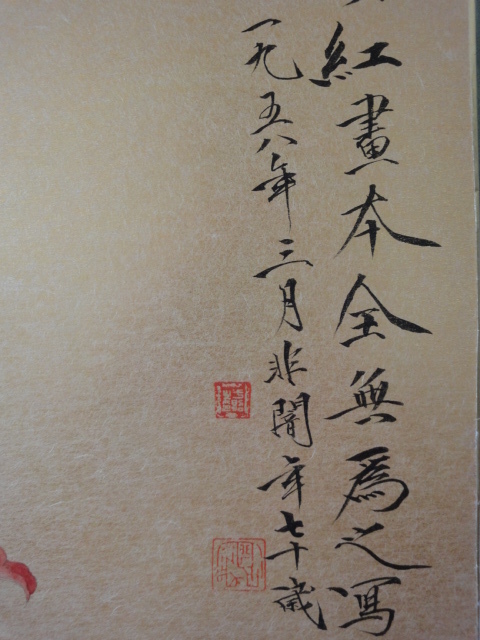 紅畫本全無爲之寫
一九五八年三月非闇年七十歲